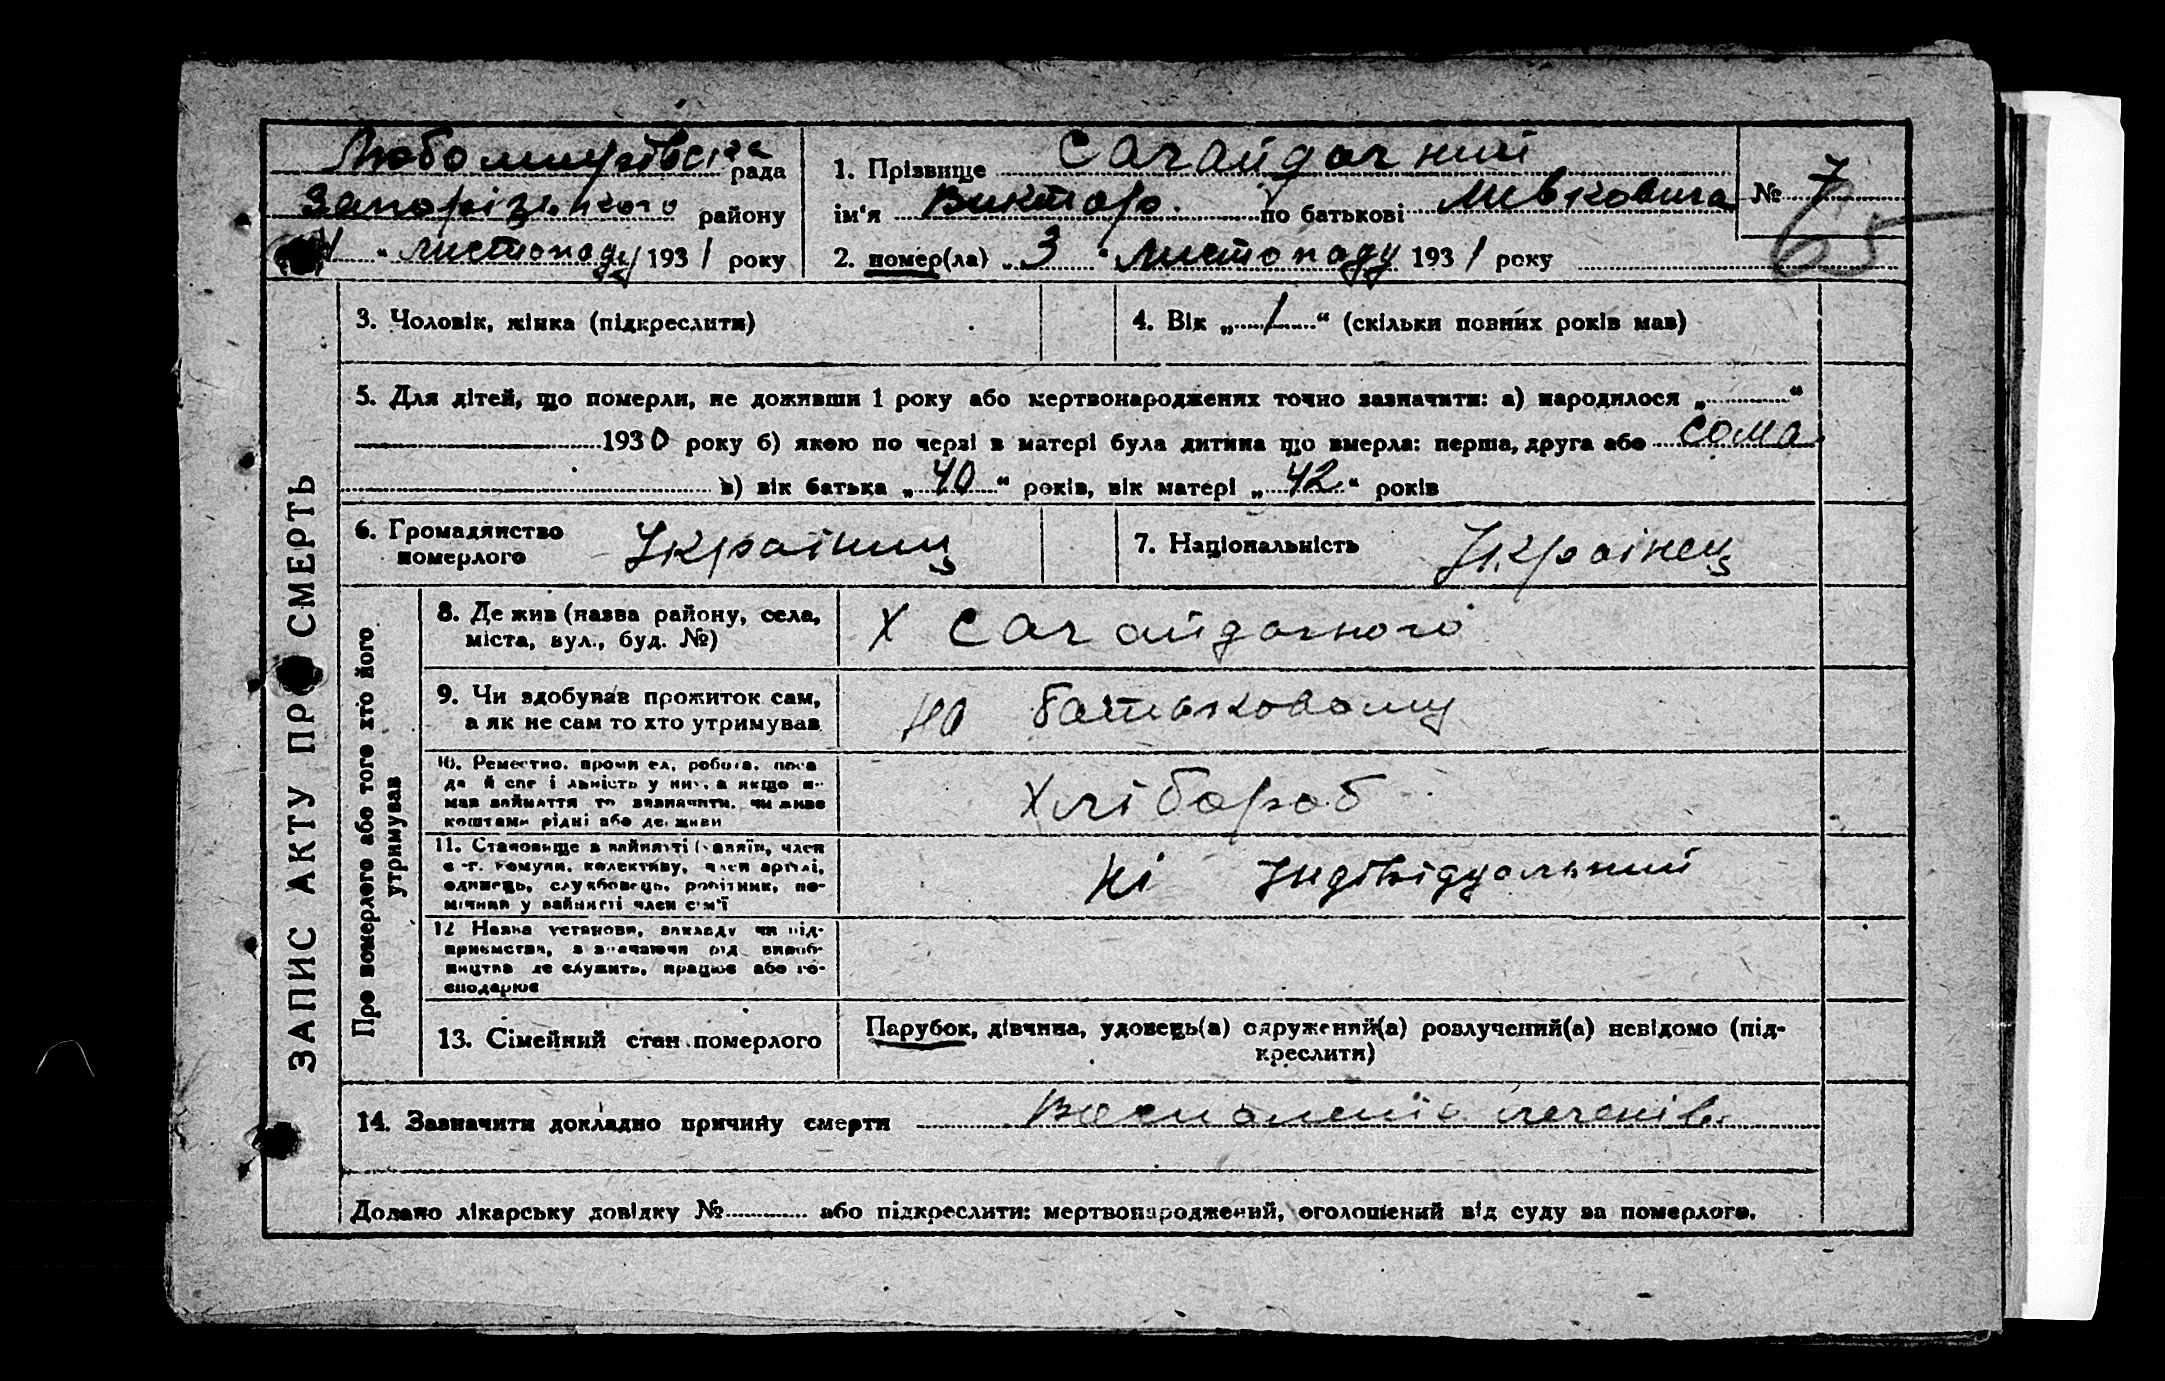 Любомирівська рада
Запорізького району
" листопаду 1931 року
1. Прізвище Сагайдачний
ім'я Виктор по батькові Левковича
2. помер(ла) „ 3 " Листопаду 1931 року
№ 7
65
ЗАПИС АКТУ ПРО СМЕРТЬ
3. Чоловік, жінка (підкреслити)
4. Вік „ 1 " (скільки повних років мав)
5. Для дітей, що померли, не доживши 1 року або мертвонароджених точно зазначити: а) народилося „ "
1930 року б) якою по черзі в матері була дитина що вмерла: перша, друга або сома
в) вік батька „ 40 " років, вік матері „ 42 " років
6. Громадянство
померлого
Україниц
7. Національність Українец
Про померлого або того хто його
утримував
8. Де жив (назва району, села,
міста, вул., буд. №)
Х Сагайдачного
9. Чи здобував прожиток сам,
а як не сам то хто утримував
На батьковому
10. Ремество, промисел, робота, поса
да й спеціяльність у них, а якщо не
мав зайняття то зазначити, чи живе
коштами рідні або де. живи
Хлібороб
11. Становище в зайнятті (хазяїн, член
с.-г. комуни, колективу, член артілі,
одинець, службовець, робітник, по-
мічний у зайнятті член сім'ї
Ні Індівідуальний
12 Назва установи, закладу чи під-
приємства, зазначаючи рід вироб-
ництва де служить, працює або го-
сподарює
13. Сімейний стан померлого
Парубок, дівчина, удовець(а) одружений(а) розлучений(а) невідомо (під-
креслити)
14. Зазначити докладно причину смерти Воспаленіе
Додано лікарську довідку № або підкреслити: мертвонароджений, оголошений від суду за померлого.